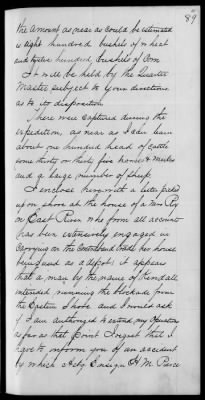 89
the amount as near as could be estimated
is eight hundred bushels of wheat
and twelve hundred bushels of Corn
It will be held by the Quarter
Master subject to your directions
as to its disposition
There were captured during the
expedition, as near as I can learn
about one hundred head of Cattle
some thirty or thirty five horses & mules
and a large number of Sheep
I enclose herewith a letter picked
up on shore at the house of a Mrs
on East River who from all accounts
has been extensively engaged in
Carrying on the Contraband trade her house
being used as a depot. it appears
that a man by the name of
intended running the blockade from
the Eastern Shore and I would ask
if I am authorized to extend my
as far as that point I regret that I
have to inform you of an accident
by which Actg Ensign H M Pierce